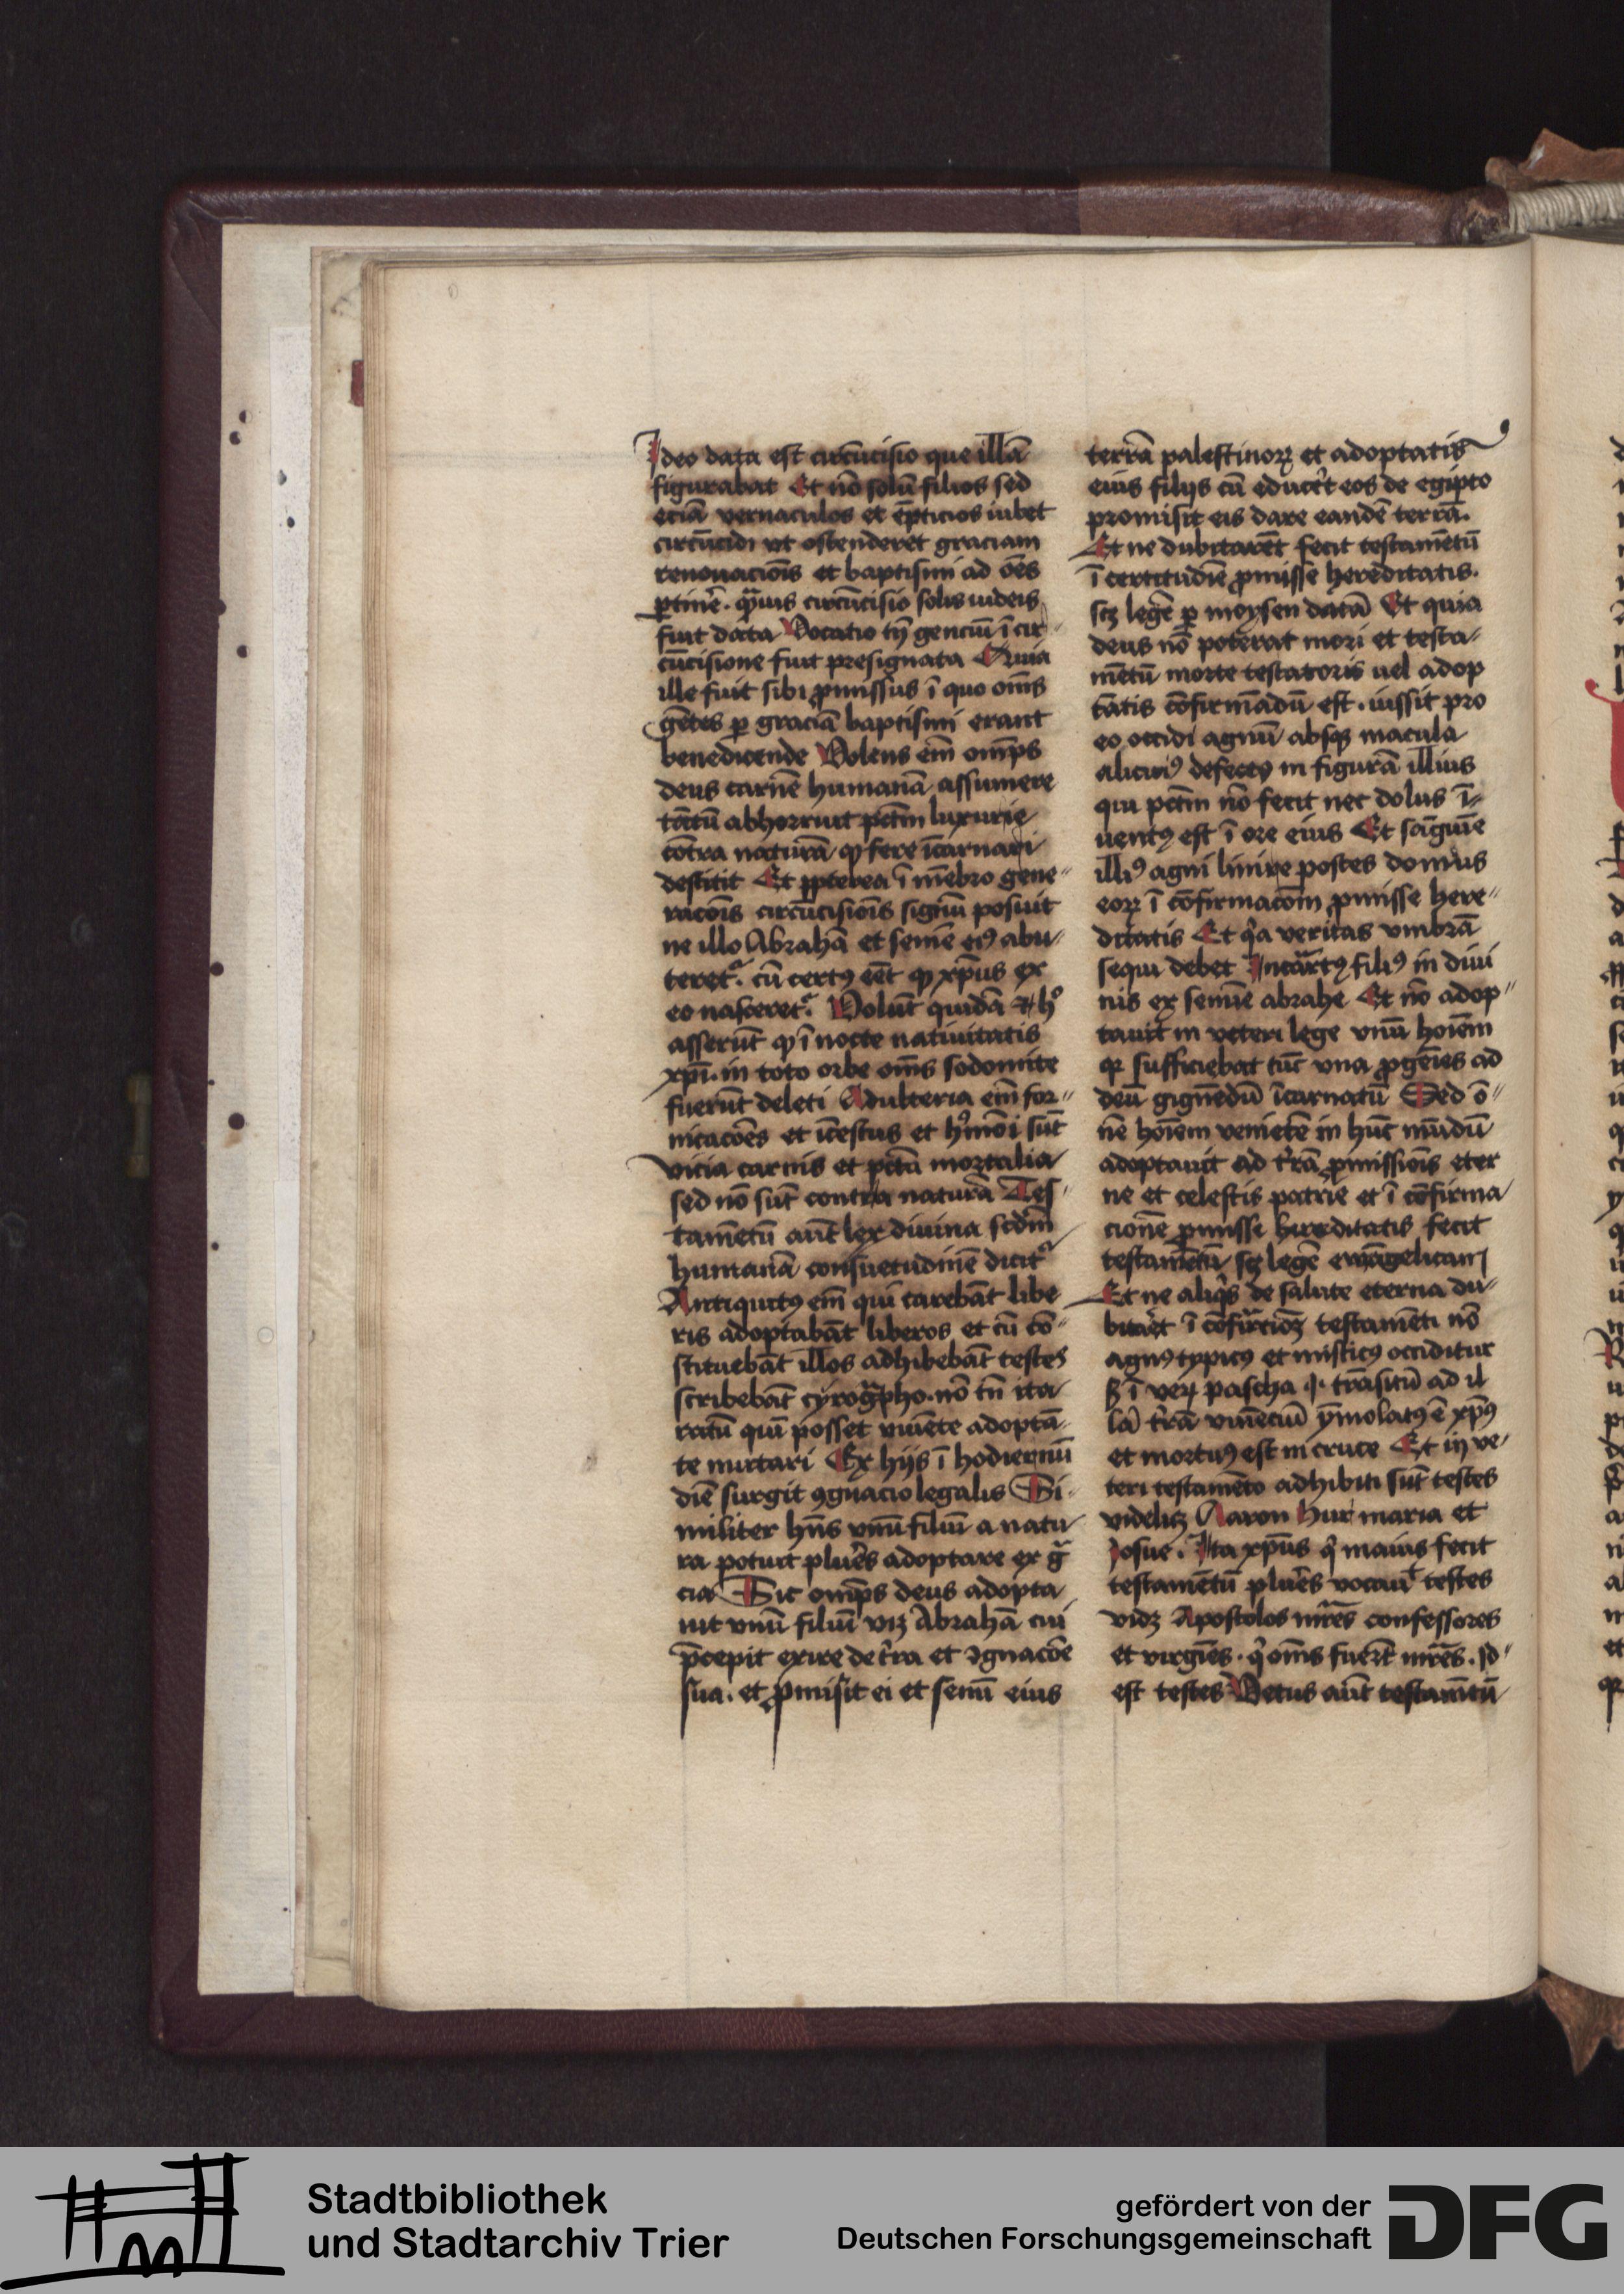 Ideo data est circūcisio que illā
figurabat Et nō solū filios sed
eciā vernaculos et ēpticios iubet
circūcidi ut ostenderet graciam
renouaciōis et baptismi ad oēs
ꝑtinē̉. qᷓuis circūcisio solis iudeis
fuit data Vocatio tn̄ genciū ī cir
cūcisione fuit presignata Quia
ille fuit sibi ꝓmissus ī quo om̄s
gētes ꝑ graciā baptismi erant
benedicende Volens em̄ omp̄s
deus carnē humanā assumere
tātū abhorruit pctm̄ luxurie
cōtra naturā ꝙ fere īcarnari
destitit Et ꝓpterea ī mēbro gene⸗
racōis circūcisiōis signū posuit
ne illo Abrahā et semē eiꝰ abu⸗
teretᷣ. cū certꝰ eēt ꝙ xp̄us ex
eo nasceretᷣ. Volūt quidā
asserūt ꝙ ī nocte natiuitatis
xp̄i. in toto orbe om̄s sodomite
fuerūt deleti Adulteria em̄ for⸗
nicacōes et īcestus et hꝰmōi sūt
vicia carnis et pctā mortalia
sed nō sūt contra naturā Tes⸗
tamētū aūt lex diuina scdm̄
humanā consuetudinē dicitᷣ
Antiquitꝰ em̄ qui carebāt libe
ris adoptabāt liberos et cū cō⸗
stituebāt illos adhibebāt testes
scribebāt cyrogᷓpho. nō tn̄ ita
ratū quī posset viuēte adoptā⸗
te mutari Ex hijs ī hodiernū
diē surgit ꝯgnacio legalis Si⸗
militer hn̄s vnū filiū a natu
ra potuit plur̄es adoptare ex gᷓ
cia Sic omp̄s deus adopta
uit vnū filiū viꝫ Abrahā cui
p̄cepit exire de tr̄a et ꝯgnacōe
sua. et ꝓmisit ei et semī eius
terrā palestinoꝝ et adoptatis
eius filijs cū educer̄t eos de egipto
promisit eis dare eandē terrā.
Et ne dubitarēt fecit testamētū
ī certitudiē ꝓmisse hereditatis.
scꝫ legē ꝑ moysen datā Et quia
deus nō poterat mori et testa⸗
mētū morte testatoris uel adop
tātis cōfirmādū est. iussit pro
eo occidi agnū absqꝫ macula
alicuiꝰ defectꝰ in figurā illius
qui pctm̄ nō fecit nec dolus ī⸗
uentꝰ est ī ore eius Et sāguīe
illiꝰ agni linire postes domus
eoꝝ ī cōfirmacōm ꝓmisse here⸗
ditatis Et qͥa veritas vmbrā
sequi debet Incᷓrtꝰ filiꝰ in diui
nis ex semīe abrahe Et nō adop⸗
tauit in veteri lege vnū hoīem
ꝙ sufficiebat tūc vna ꝓgēies ad
deū gignēdū īcarnatū Sed ō⸗
nē hoīem veniētē in hūc mūdū
adoptauit ad tr̄ā ꝓmissiōis eter
ne et celestis patrie et ī cōfirma
cionē ꝓmisse hereditatis fecit
testamētū scꝫ legē ewāgelicam
Et ne aliqͥs de salute eterna du⸗
bitar̄et ī testamēti nō
agnꝰ typicꝰ et misticꝰ occiditur
ꝫ ī veꝝ pascha .i. trāsitū ad il
lā tr̄ā viuēciū ymolatꝰ ē xp̄us
et mortuꝰ est in cruce Et in ve⸗
teri testamēto adhibiti sūt testes
videlicꝫ Aaron Hur maria et
Josue. Ita xp̄us qͥ maius fecit
testamētū plur̄es vocauᵗ testes
vidꝫ Apostolos mr̄es confessores
et virgīes. qͥ om̄s fuer̄t mr̄es. id⸗
est testes Vetus aūt testamētū
Stadtbibliothek
und Stadtarchiv Trier
gefördert von der
Deutschen Forschungsgemeinschaft
DFG